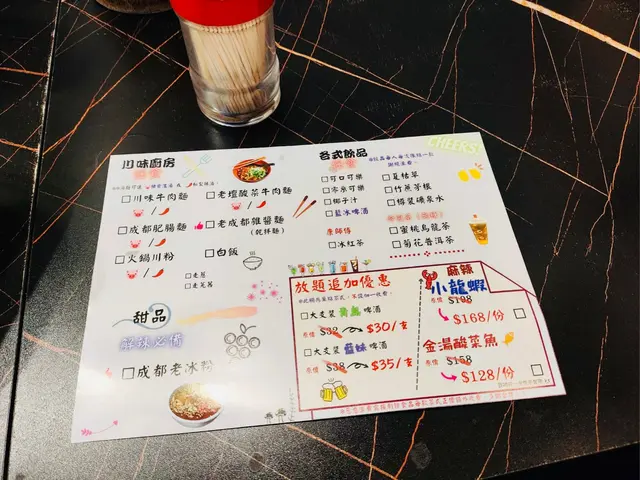 川味廚房
川味牛肉麵
老壇酸菜牛肉麵
成都肥腸麵
老成都雜醬麵
(乾拌麵)
火鍋川粉
白飯
走蔥
走芫茜
甜品
解辣必備
成都老冰粉
各式飲品
CHEERS!
可口可樂
零系可樂
椰子汁
藍冰啤酒
康師傅
冰紅茶
夏枯草
竹蔗茅根
樽裝礦泉水
蜜桃烏龍茶
菊花普洱茶
放題追加優惠
大支裝青島啤酒
$32
$30/支
大支裝藍妹啤酒
$38
$35/支
麻辣
小龍蝦
$198
$168/份
金湯酸菜魚
$158
$128/份